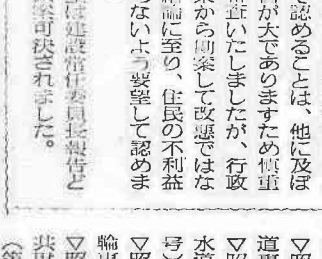 を認めることは、他に及ぼ
が大でありますため慎重
査いたしましたが、行政
案から勘案して改悪ではな
結論に至り、住民の不利益
らないよう要望して認めま
は建設常任委員長報告ど
案可決されました。
▽照
道事
▽照
水道
号）
▽照
輪事
▽照
共用
（第